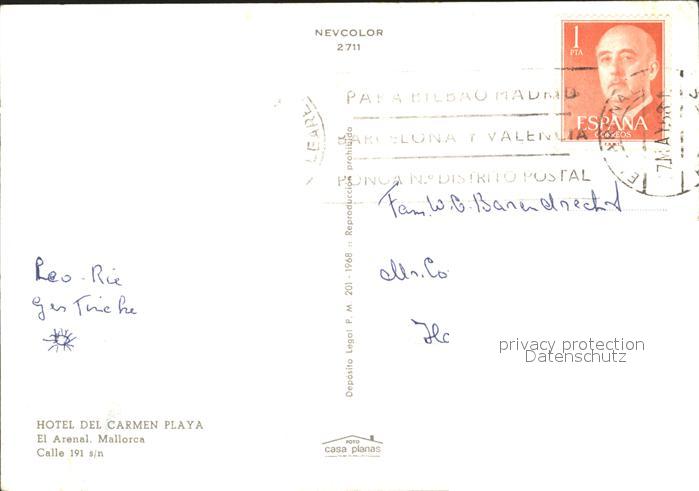 NEVCOLOR
2711
1
PTA
ESPAÑA
CORREOS
PARA BILBAO MADRID
BARCELONA Y VALENCIA
PONGA N.º DISTRITO POSTAL
Fam. W. C. Barendrecht
Leo - Rie
Ger Tineke
privacy protection
Datenschutz
Depósito Legal P. M. 201 - 1968 :: Reproducción prohibida
HOTEL DEL CARMEN PLAYA
El Arenal. Mallorca
Calle 191 s/n
FOTO
casa planas